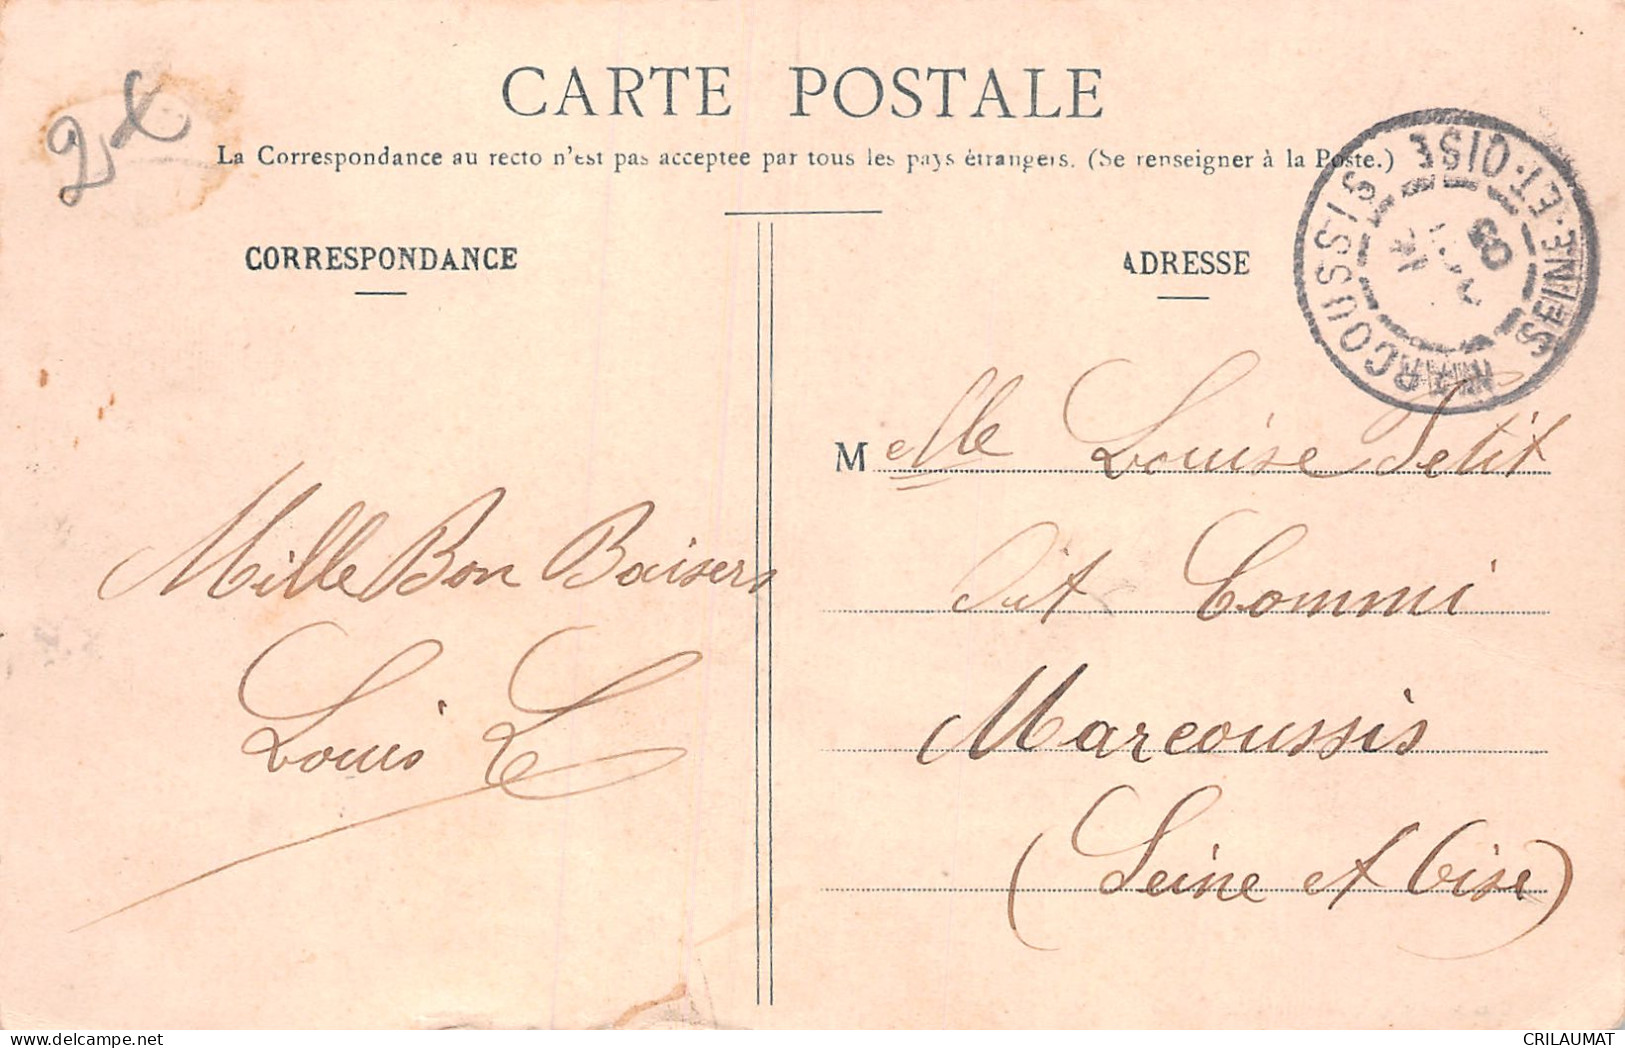 CARTE POSTALE
La Correspondance au recto n'est pas acceptee par tous les pays étrangers. (Se renseigner à la Poste.)
CORRESPONDANCE
ADRESSE
MARCOUSSIS SEINE-ET-OISE
Melle Louise Petit
dit Commi
Marcoussis
(Seine et Oise)
Mille Bon Baisers
Louis L
CRILAUMAT